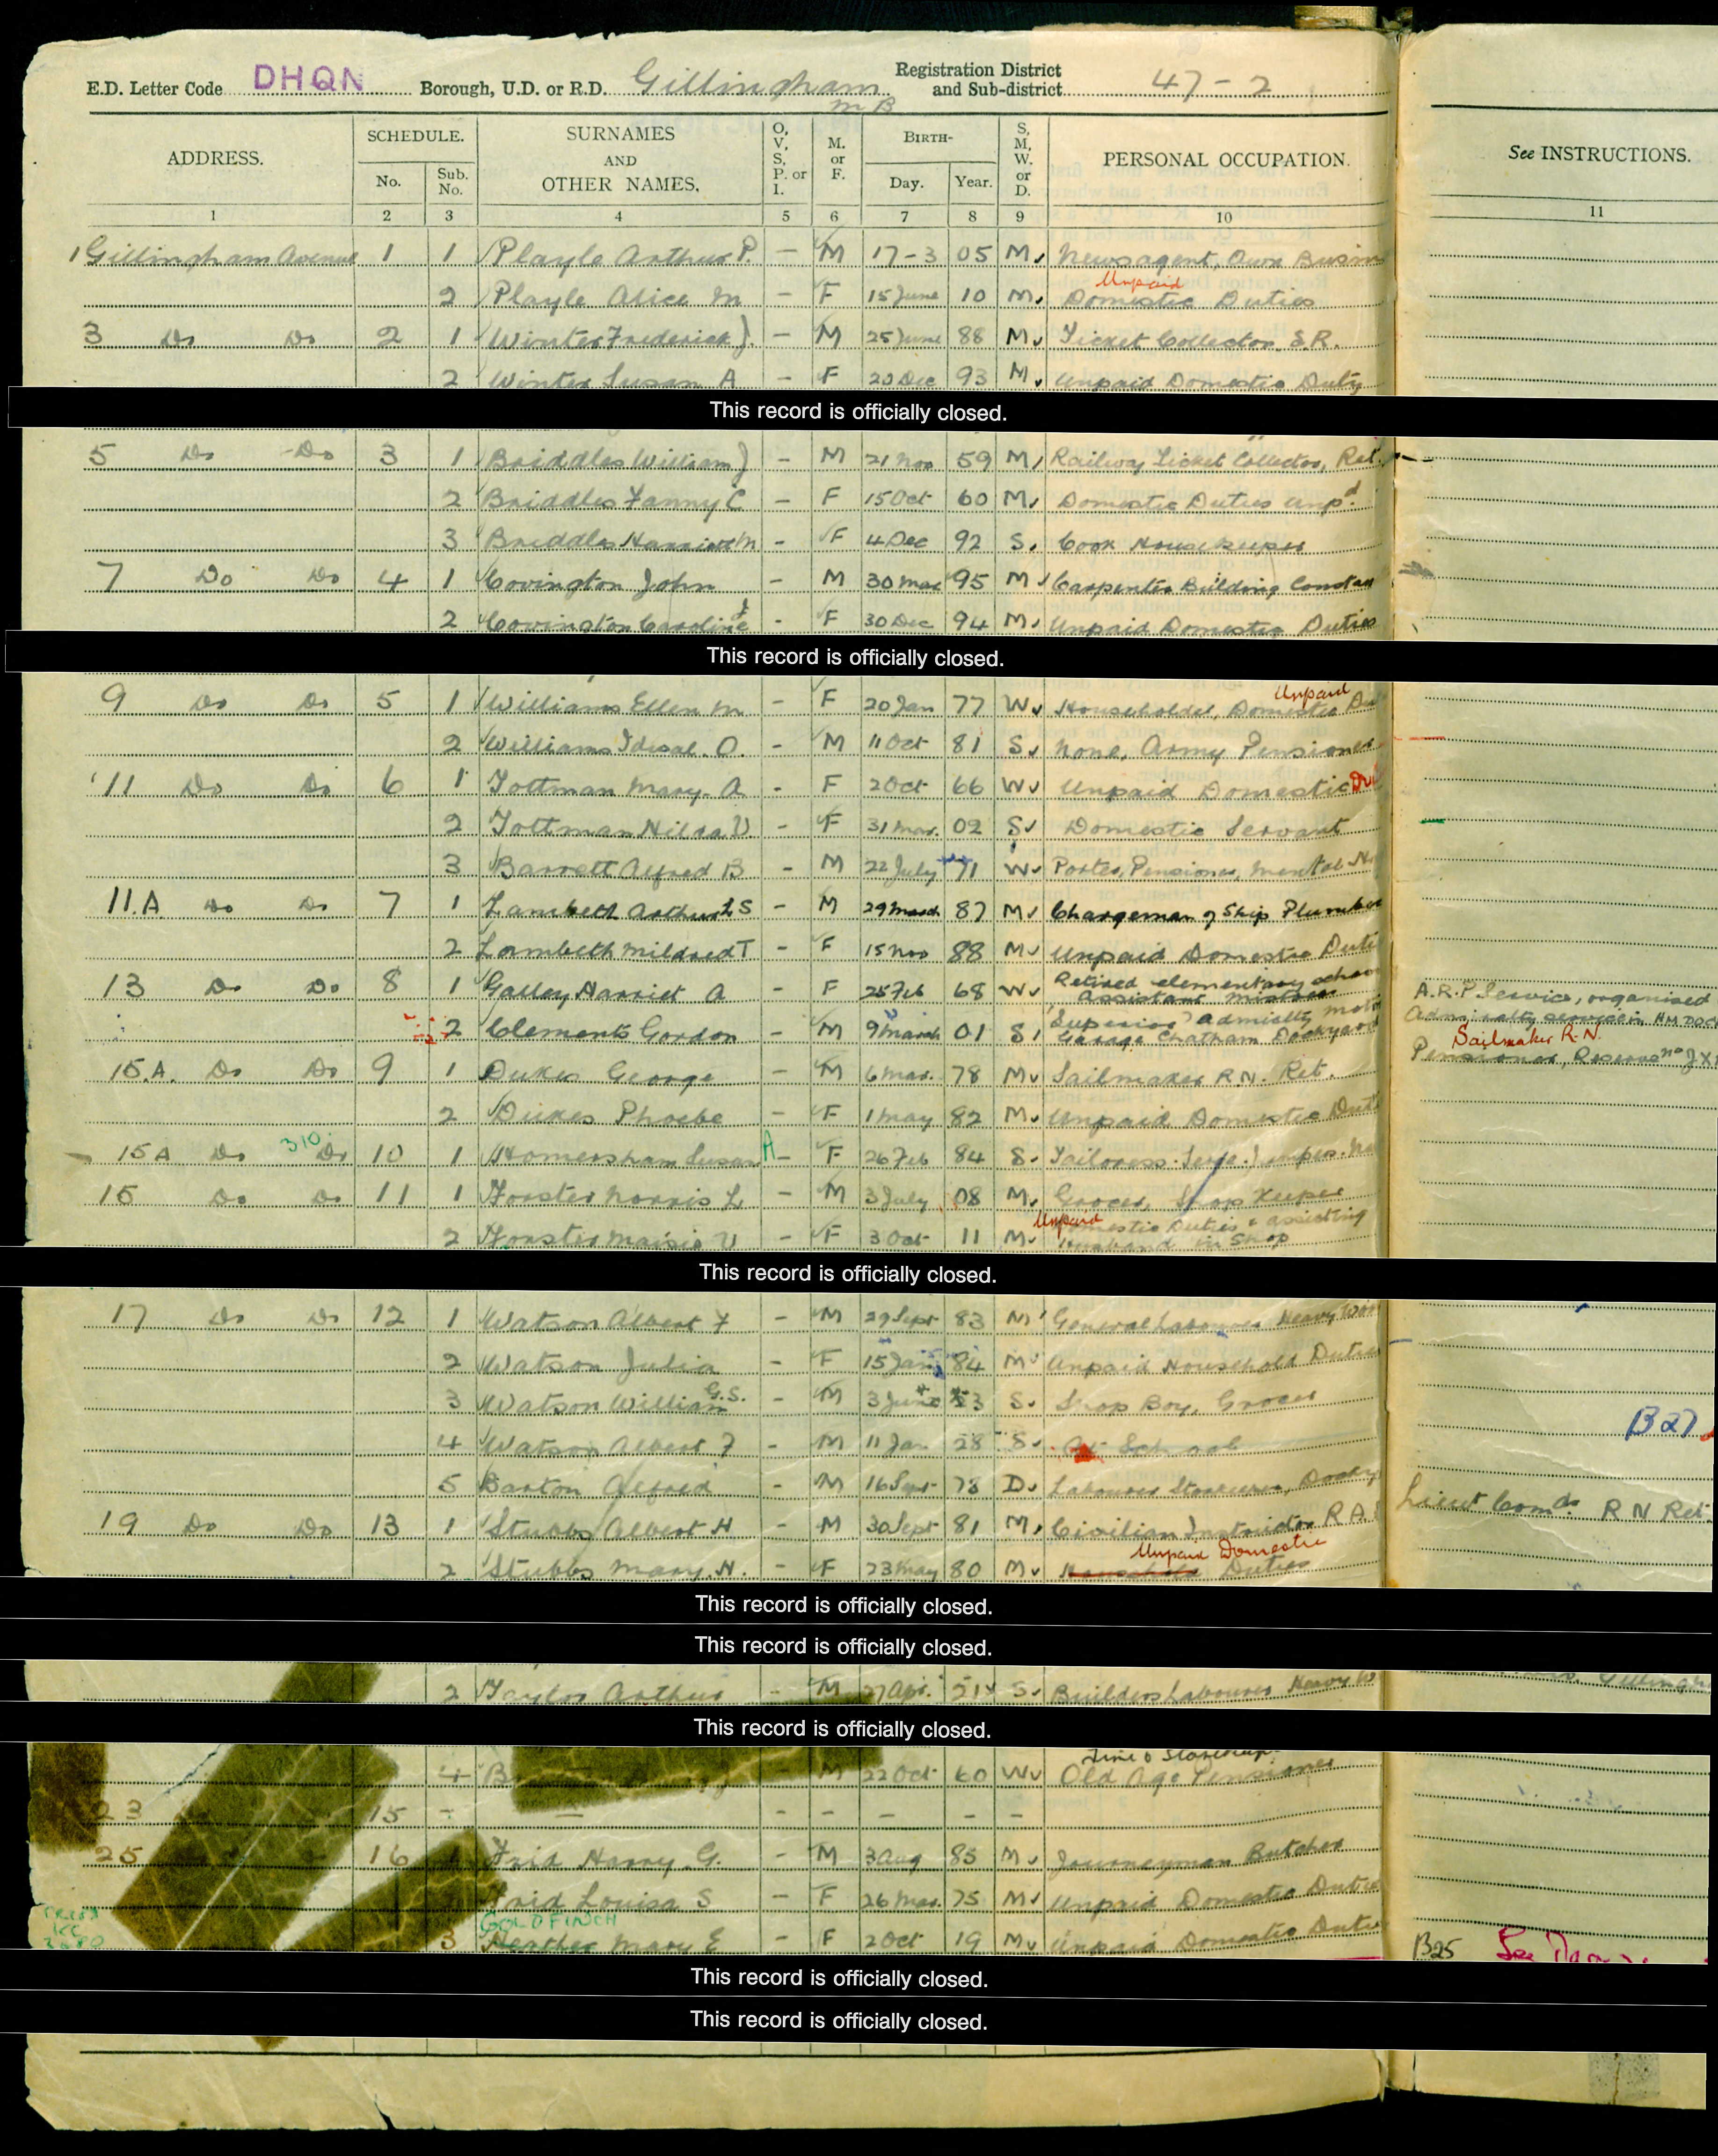 E.D. Letter Code DHQN Borough, U.D. or R.D. Gillingham M B Registration District and Sub-district 47-2
ADDRESS. SCHEDULE. No. Sub. No. SURNAMES AND OTHER NAMES. O, V, S, P. or I. M. or F. BIRTH- Day. Year. S, M, W. or D. PERSONAL OCCUPATION. See INSTRUCTIONS.
1 2 3 4 5 6 7 8 9 10 11
1 Gillingham Avenue 1 1 Playle Arthur P. - M 17-3 05 M. Newsagent, Own Busin
2 Playle Alice M - F 15 June 10 M. Unpaid Domestic Duties
3 Do Do 2 1 Winter Frederick J. - M 25 June 88 M Ticket Collector, S.R.
2 Winter Susan A - F Dec 93 M. Unpaid Domestic Duty
This record is officially closed.
5 Do Do 3 1 Briddles William J - M 21 Nov 59 M Railway Ticket Collector, Ret.
2 Briddles Fanny C - F 15 Oct 60 M. Domestic Duties unpd.
3 Briddles Harriett M - F 4 Dec 92 S. Cook Housekeeper
7 Do Do 4 1 Covington John - M 30 Mar 95 M Carpenter Building
2 Covington Caroline - F 30 Dec 94 M. Unpaid Domestic Duties
This record is officially closed.
9 Do Do 5 1 Williams Ellen M - F 20 Jan 77 W Householder, Unpaid Domestic Du
2 Williams O. - M 11 Oct 81 S None, Army Pensioner
11 Do Do 6 1 Tottman Mary A - F 2 Oct 66 W Unpaid Domestic Du
2 Tottman Hilda V - F 31 Mar. 02 S Domestic Servant
3 Barrett Alfred B - M 22 July 71 W Porter, Pensioner, Mental H
11.A Do Do 7 1 Lambeth Arthur L S - M 29 March 87 M Chargeman of Ship Plumber
2 Lambeth Mildred T - F 15 Nov 88 M Unpaid Domestic Duti
13 Do Do 8 1 Galley Harriet A - F 25 Feb 68 W Retired elementary school Assistant Mistress
2 Clements Gordon - M 9 March 01 S Admialty moto Garage Chatham Dockyard A.R.P. Service, organised Admiralty service in HM DOC
15.A. Do Do 9 1 Dukes George - M 6 Mar. 78 M Sailmaker R.N. Ret. Sailmaker R.N. Pensioner, Reserve no JX
2 Dukes Phoebe - F 1 May 82 M. Unpaid Domestic Duti
15 A Do 310 Do 10 1 Homersham Susan A - F 26 Feb 84 S. Tailoress Serge Jumper
15 Do Do 11 1 Forster Norris L - M 3 July 08 M. Grocer, Shop Keeper
2 Forster Maisie V - F 3 Oct 11 M. Unpaid Domestic Duties & assisting Husband in Shop
This record is officially closed.
17 Do Do 12 1 Watson Albert F - M 29 Sept 83 M General Labourer Heavy Wor
2 Watson Julia - F 15 Jan 84 M Unpaid Household Duties
3 Watson William G.S. - M 3 June 23 S. Shop Boy, Grocer
4 Watson Albert F - M 11 Jan 28 S At School B27
5 Barton Alfred - M 16 Sept 73 D. Labourer Storeman, Docky
19 Do Do 13 1 Stubbs Albert H - M 30 Sept 81 M. Civilian Instructor R A Lieut Comdr. R N Ret.
2 Stubbs Mary H. - F 23 May 80 M Unpaid Domestic Duties
This record is officially closed.
This record is officially closed.
2 Taylor Arthur - M 27 Apr. 21 S. Builders Labourer Heavy W
This record is officially closed.
4 B - M 22 Oct 60 W Old Age Pensioner
23 15 - - - - - - -
25 16 Frid Harry G. - M 3 Aug 85 M Journeyman Butcher
Frid Louisa S - F 26 Mar. 75 M Unpaid Domestic Dutie
GOLDFINCH
3 Mary E - F 2 Oct 19 M Unpaid Domestic Dutie B25 See
This record is officially closed.
This record is officially closed.